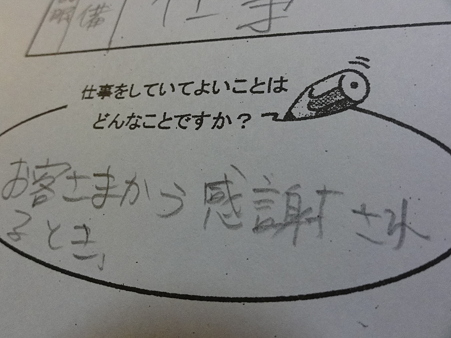 備 仕事
仕事をしていてよいことは
どんなことですか？
お客さまから感謝され
るとき、